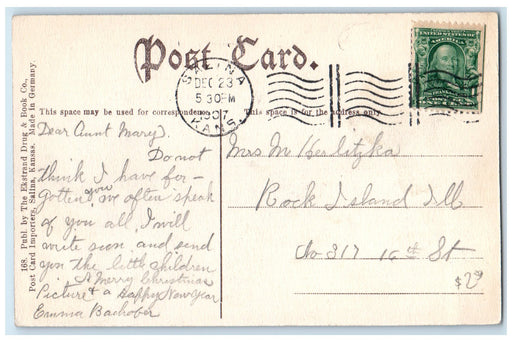 Post Card.
SALINA
DEC 23
5 30 PM
1907
KANS.
UNITED STATES OF AMERICA
This space may be used for correspondence
This space is for the address only.
168. Publ. by The Ekstrand Drug & Book Co.,
Post Card Importers, Salina, Kansas. Made in Germany.
Dear Aunt Mary,
Do not
think I have for-
gotten you, we often speak
of you all, I will
write soon and send
you the little children
Picture
A Merry Christmas
& a Happy New Year
Emma Bachofer
Mrs M Herlitzka
Rock Island Ill
No 817 16th St
$2.50